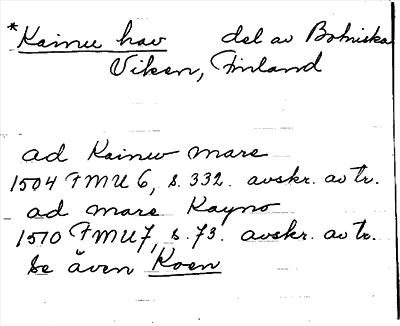 *Kainu hav del av Botniska
Viken, Finland
ad Kainu mare
1504 FMU 6, s. 332. avskr. av tr.
ad mare Kayno
1510 FMU 7, s. 73. avskr. av tr.
Se även Koen